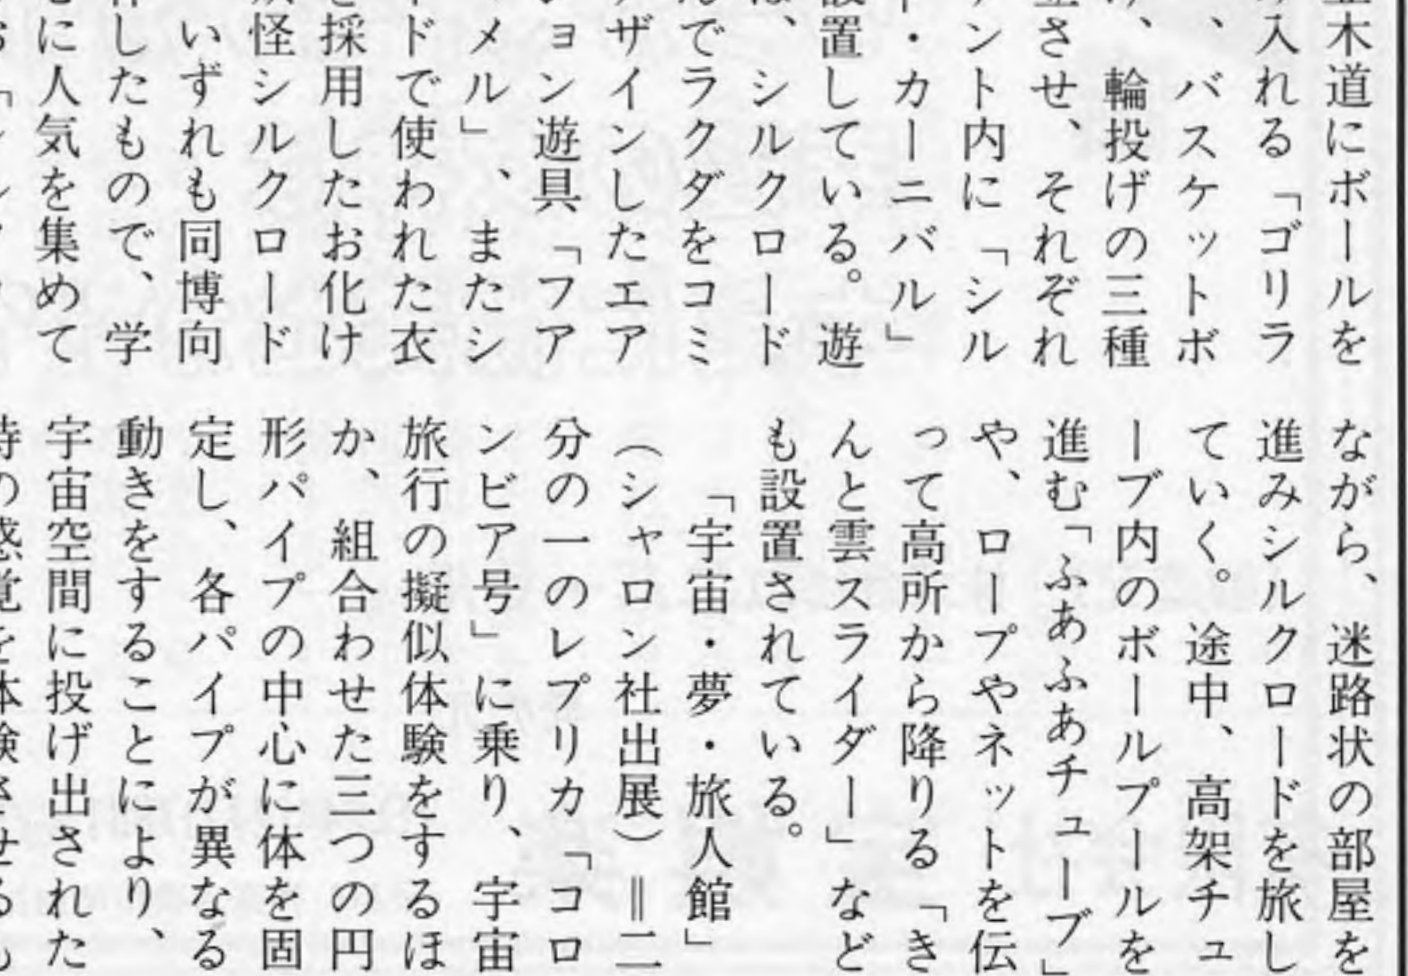 木道にボールを
入れる「ゴリラ
、バスケットボ
、輪投げの三種
させ、それぞれ
ント内に「シル
・カーニバル」
設置している。遊
、シルクロード
でラクダをコミ
ザインしたエア
ョン遊具「ファ
メル」、またシ
ドで使われた衣
採用したお化け
怪シルクロード
いずれも同博向
したもので、学
に人気を集めて
ながら、迷路状の部屋を
進みシルクロードを旅し
ていく。途中、高架チュ
ーブ内のボールプールを
進む「ふあふあチューブ」
や、ロープやネットを伝
って高所から降りる「き
んと雲スライダー」など
も設置されている。
「宇宙・夢・旅人館」
（シャロン社出展）＝二
分の一のレプリカ「コロ
ンビア号」に乗り、宇宙
旅行の擬似体験をするほ
か、組合わせた三つの円
形パイプの中心に体を固
定し、各パイプが異なる
動きをすることにより、
宇宙空間に投げ出された